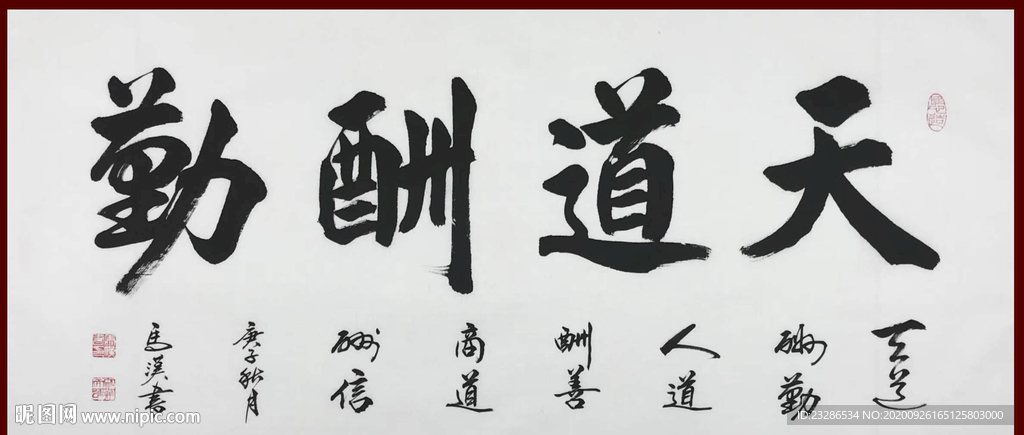 天道酬勤
天道
酬勤
人道
酬善
商道
酬信
庚子秋月
馬漢書
昵图网 www.nipic.com
ID:23286534 NO:20200926165125803000